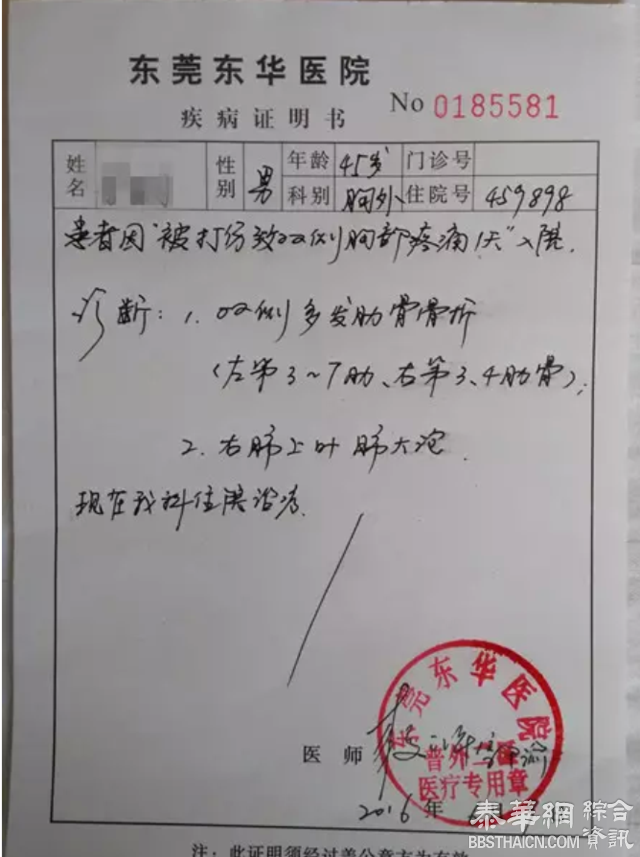 东莞东华医院
疾病证明书
No 0185581
姓名 性别 男 年龄 45岁 门诊号
科别 胸外 住院号 459898
患者因“被打伤致双侧胸部疼痛1天”入院.
诊断: 1. 双侧多发肋骨骨折
(左第3~7肋、右第3、4肋骨);
2. 右肺上叶肺大泡.
现在我科住院治疗.
东莞东华医院
普外二
医疗专用章
医师
2016年
注:此证明须经过盖公章方为有效
泰華網 綜合資訊
BBSTHAICN.COM